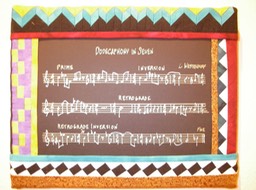 Dodecaphony in Seven
Prime Inversion
Retrograde
Retrograde Inversion Fine